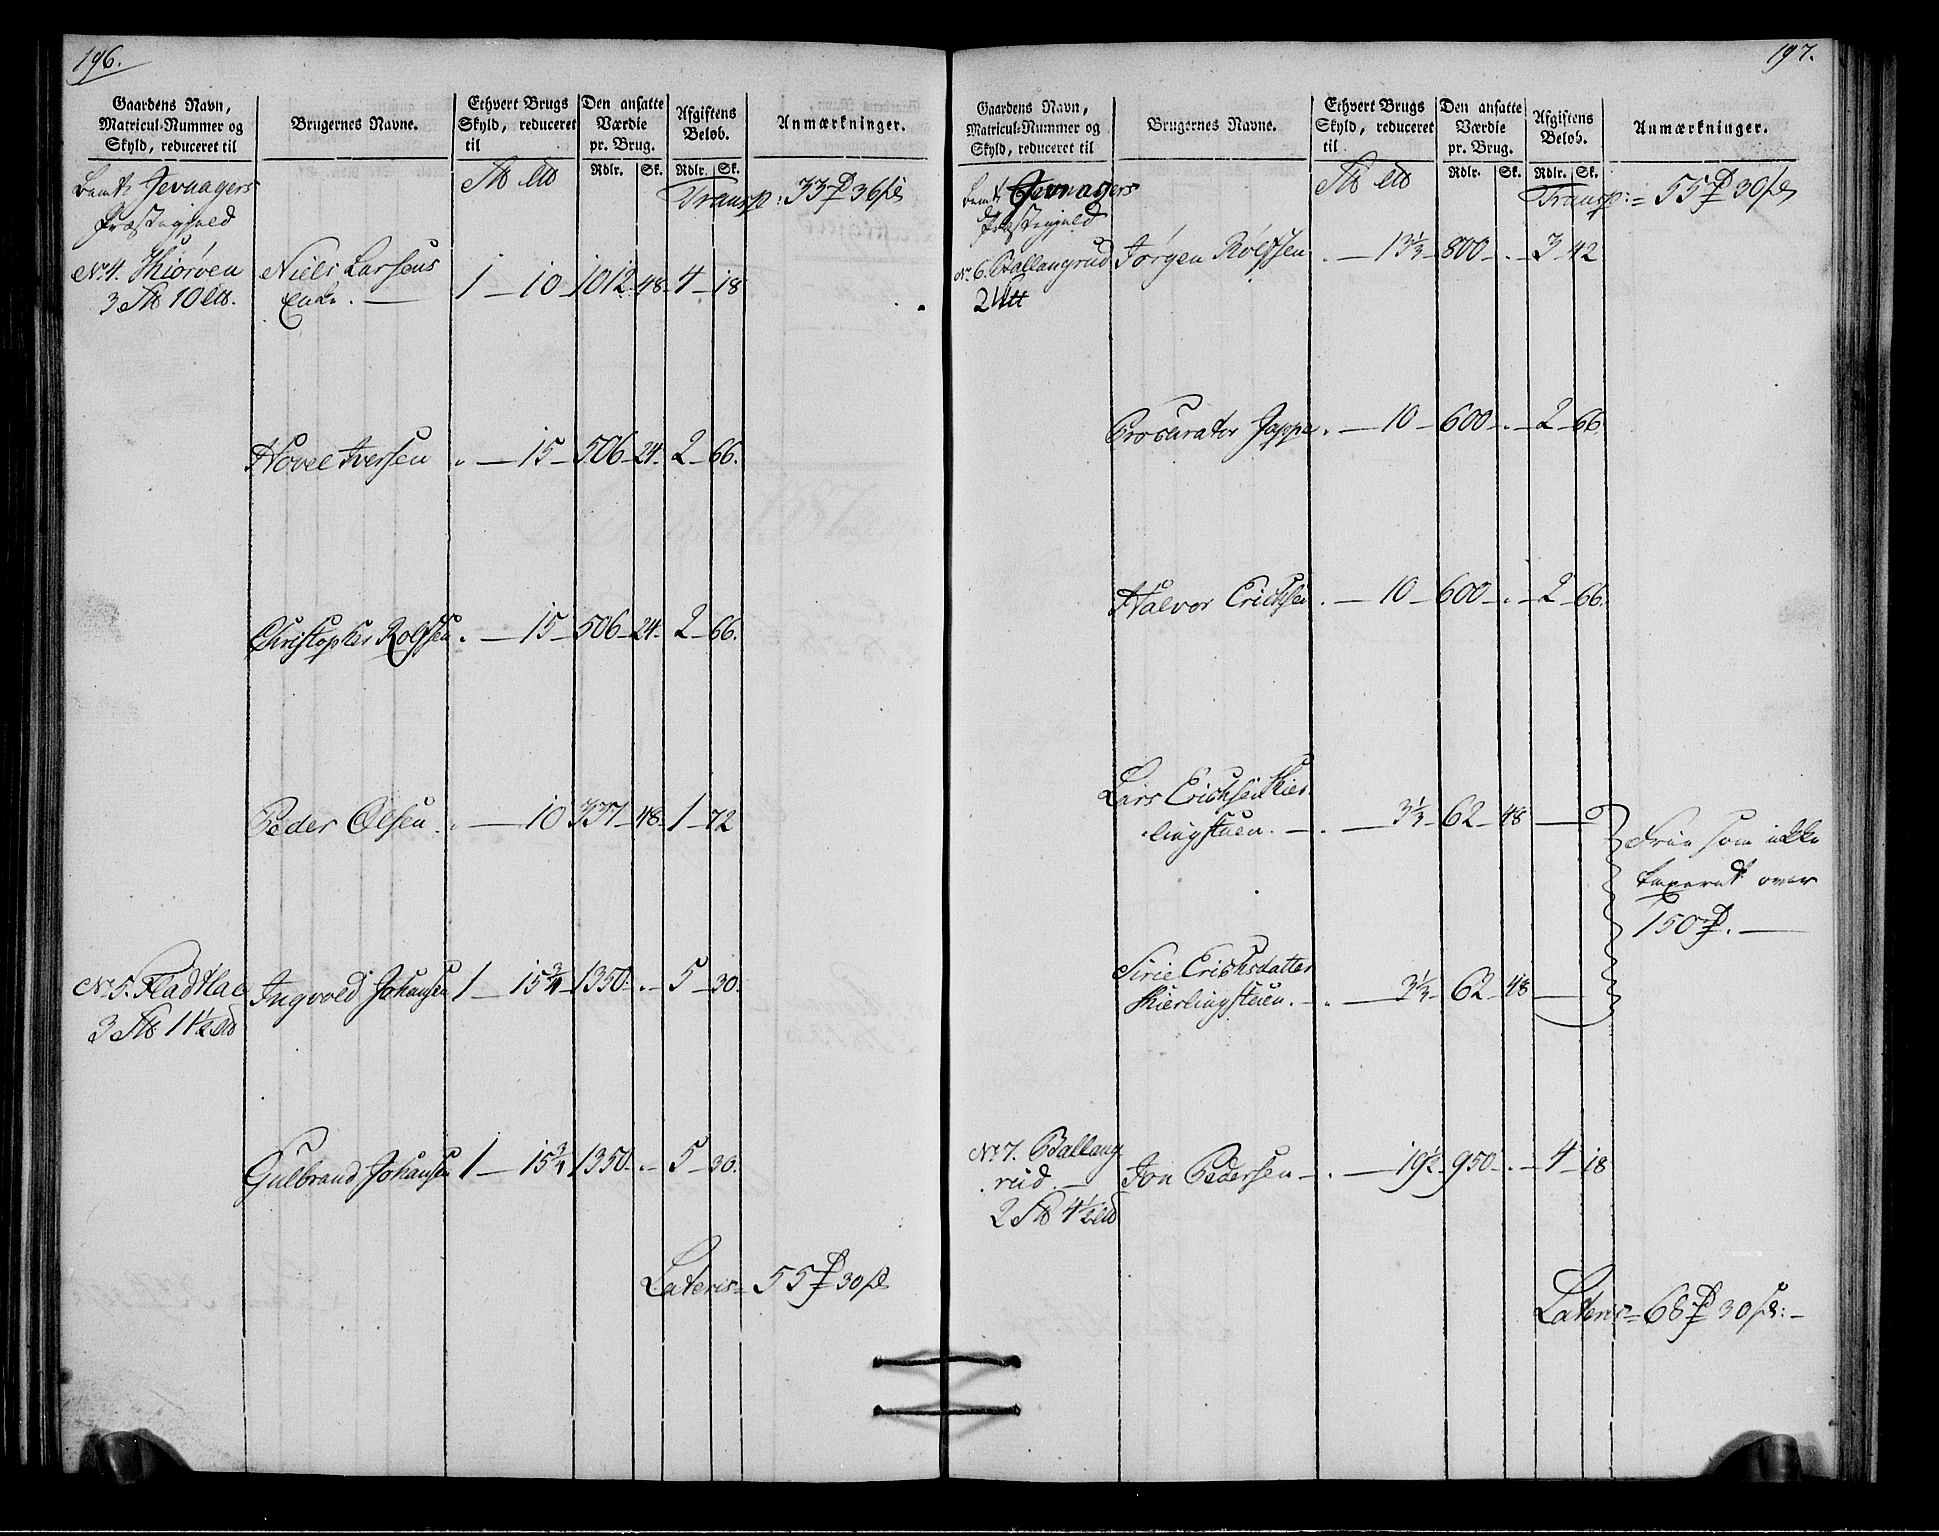 196.
Gaardens Navn, Matricul-Nummer og Skyld, reduceret til
Brugernes Navne.
Ethvert Brugs Skyld, reduceret til
Den ansatte Værdie pr. Brug.
Afgiftens Beløb.
Anmærkninger.
Rdlr. Sk. Rdlr. Sk.
Jevnagers Transp: 33 36
Præstegjeld
No. 4. Niels Larsens 1 — 10 — 1012 — 48 — 4 — 18
Enke. —
3 10
Hovel Iversen . — 15 — 506 — 24 — 2 — 66.
Christopher Rolfsen . — 15 — 506 — 24 — 2 — 66.
Peder Olsen . — 10 337 — 48 — 1 — 72
No. 5. Fladtlac Ingvold Johansen 1 — 15¾ — 1350 . — 5 — 30.
3 11½
Gulbrand Johansen 1 — 15¾ 1350 . — 5 — 30.
Lateris = 55 30
197.
Gaardens Navn, Matricul-Nummer og Skyld, reduceret til
Brugernes Navne.
Ethvert Brugs Skyld, reduceret til
Den ansatte Værdie pr. Brug.
Afgiftens Beløb.
Anmærkninger.
Rdlr. Sk. Rdlr. Sk.
Jevnagers Transp: = 55 30
Præstegjeld
No. 6. Ballangrud Jørgen Rolfsen . — 13⅓ — 800 — . — 3 — 42
2
Procurator Jappe . — 10 — 600 — . — 2 — 66
Halvor Erichsen . — 10 — 600 — . — 2 — 66.
Lars Erichsen Kier
lingstuen. — . — 3⅓ — 62 — 48 —
Frie som ikke
taxeret over
150. —
Sirie Erichsdatter
Kierlingstuen. — . — 3⅓ — 62 — 48 —
No. 7. Ballang
rud. — Jon Pedersen — . — 19½ — 950 — . — 4 — 18
2 4½
Lateris = 68 30